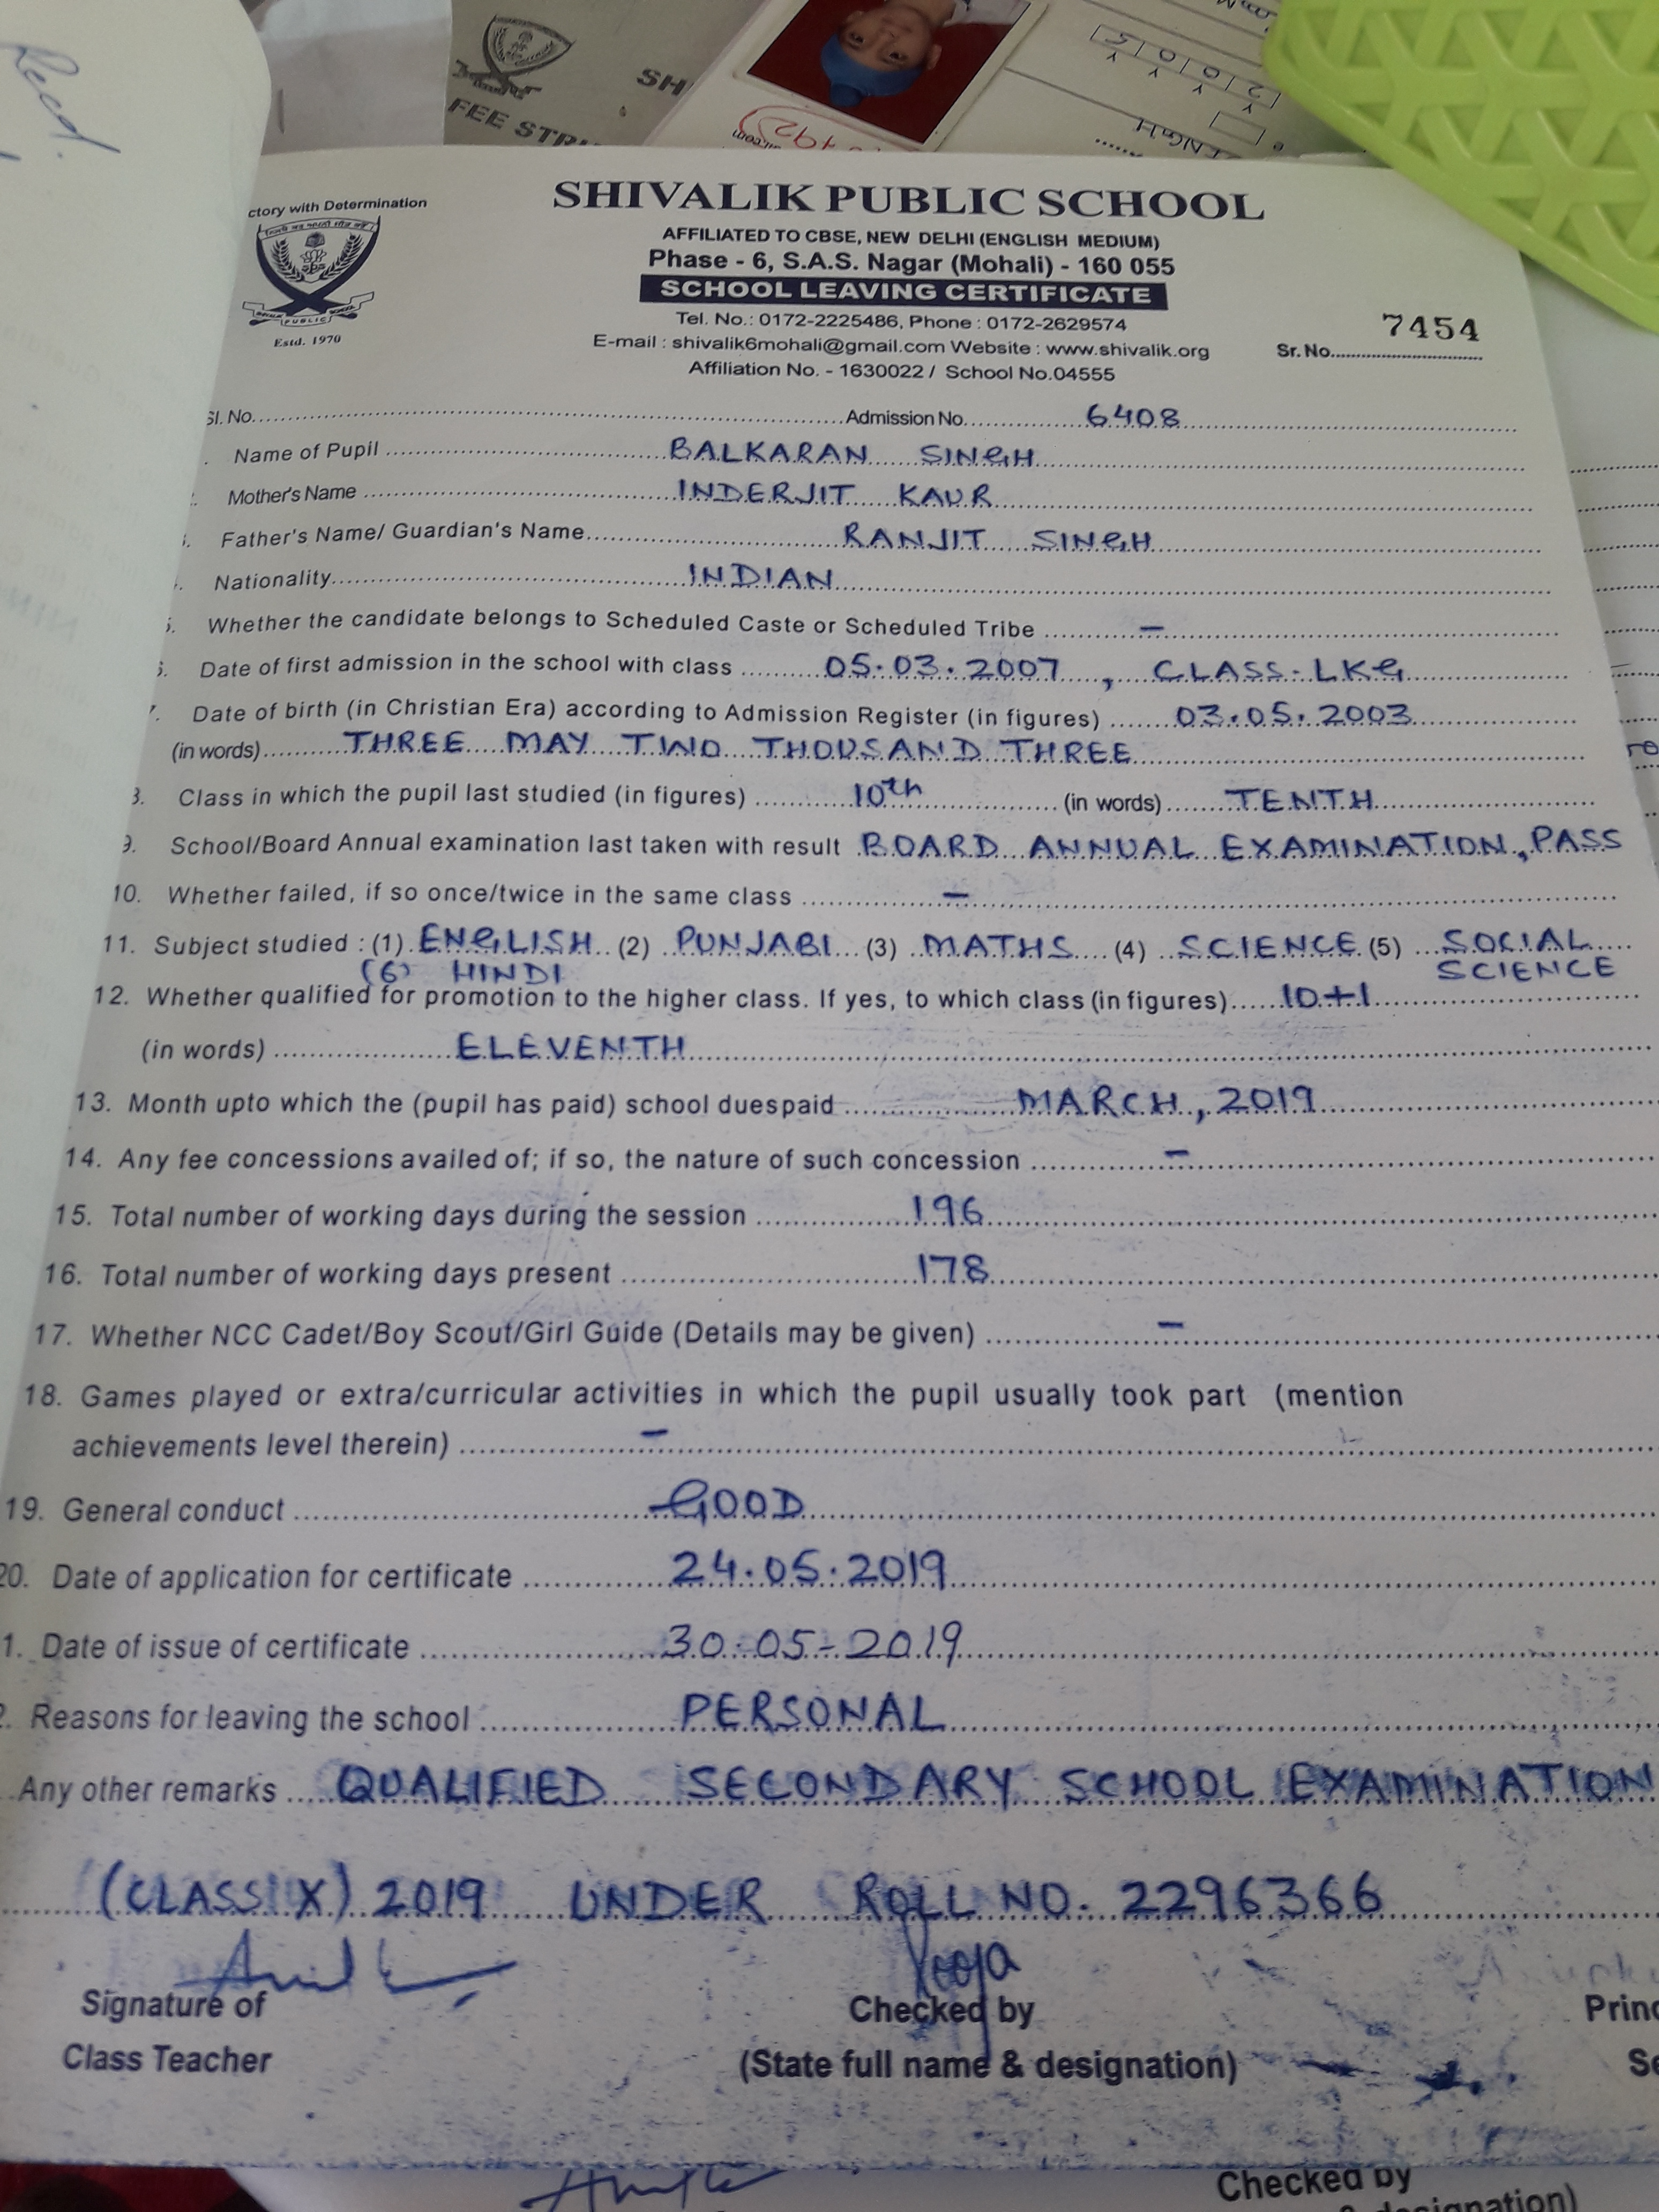 Recd.
SH
FEE STR
SHIVALIK PUBLIC SCHOOL
ctory with Determination
AFFILIATED TO CBSE, NEW DELHI (ENGLISH MEDIUM)
Phase - 6, S.A.S. Nagar (Mohali) - 160 055
SCHOOL LEAVING CERTIFICATE
PUBLIC
Estd. 1970
Tel. No.: 0172-2225486, Phone : 0172-2629574
E-mail : shivalik6mohali@gmail.com Website : www.shivalik.org
Sr. No. 7454
Affiliation No. - 1630022 / School No.04555
Sl. No. Admission No. 6408
Name of Pupil BALKARAN SINGH
Mother's Name INDERJIT KAUR
Father's Name/ Guardian's Name RANJIT SINGH
Nationality INDIAN
Whether the candidate belongs to Scheduled Caste or Scheduled Tribe –
Date of first admission in the school with class 05.03.2007, CLASS-LKG
Date of birth (in Christian Era) according to Admission Register (in figures) 03.05.2003
(in words) THREE MAY TWO THOUSAND THREE
Class in which the pupil last studied (in figures) 10th (in words) TENTH
9. School/Board Annual examination last taken with result BOARD ANNUAL EXAMINATION, PASS
10. Whether failed, if so once/twice in the same class –
11. Subject studied : (1) ENGLISH (2) PUNJABI (3) MATHS (4) SCIENCE (5) SOCIAL SCIENCE
(6) HINDI
12. Whether qualified for promotion to the higher class. If yes, to which class (in figures) 10+1
(in words) ELEVENTH
13. Month upto which the (pupil has paid) school duespaid MARCH, 2019
14. Any fee concessions availed of; if so, the nature of such concession –
15. Total number of working days during the session 196
16. Total number of working days present 178
17. Whether NCC Cadet/Boy Scout/Girl Guide (Details may be given) –
18. Games played or extra/curricular activities in which the pupil usually took part (mention
achievements level therein) –
19. General conduct GOOD
20. Date of application for certificate 24.05.2019
1. Date of issue of certificate 30-05-2019
2. Reasons for leaving the school PERSONAL
Any other remarks QUALIFIED SECONDARY SCHOOL EXAMINATION
(CLASS X) 2019 UNDER ROLL NO. 2296366
Pooja
Signature of Checked by Princ
Class Teacher (State full name & designation) Se
Checked by
designation)